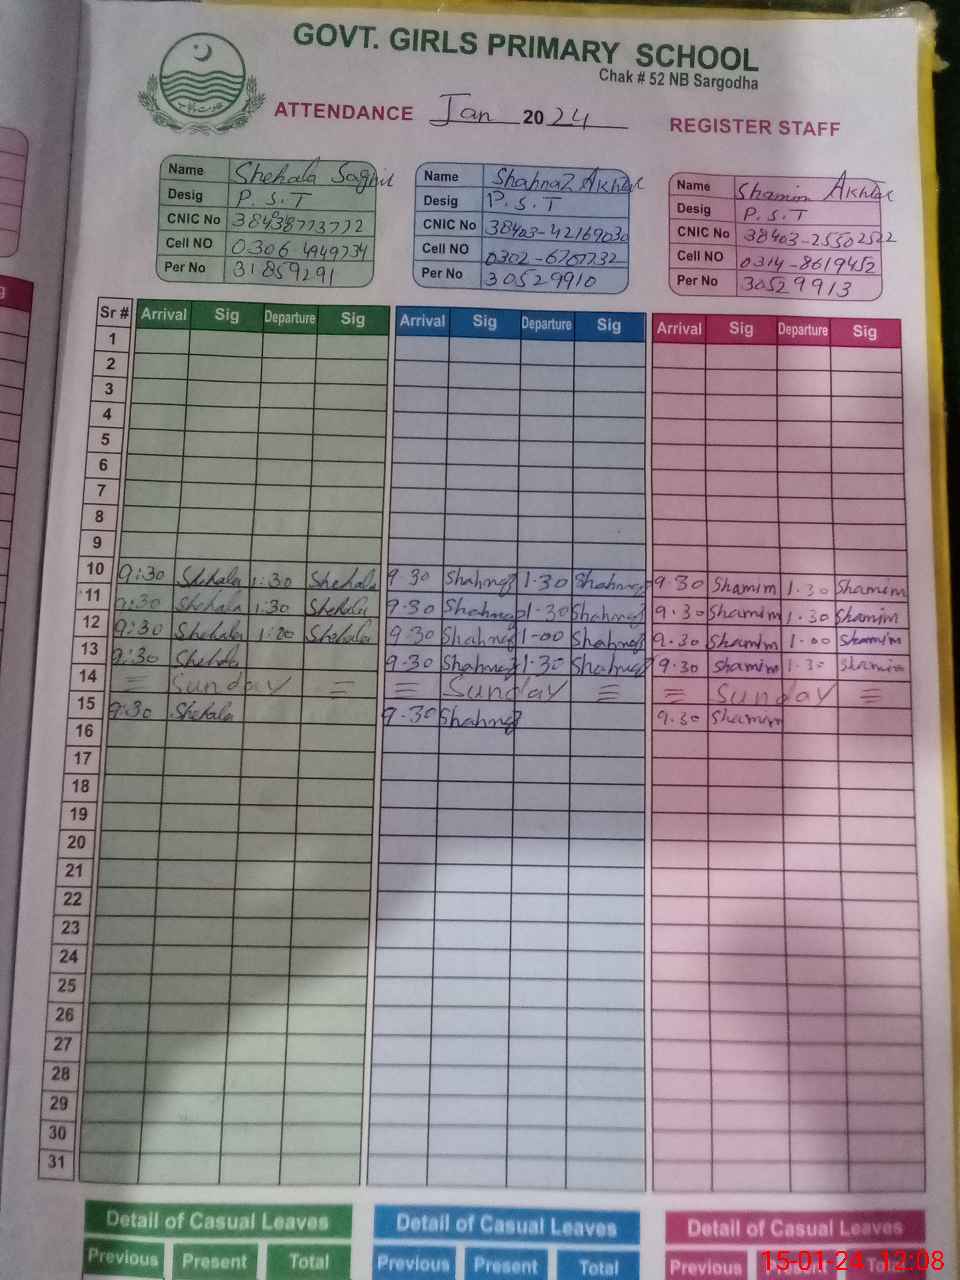 GOVT. GIRLS PRIMARY SCHOOL
Chak # 52 NB Sargodha
ATTENDANCE Jan 2024 REGISTER STAFF
Name Shehala Saghir Name Shahnaz Akhtar Name Shamim Akhtar
Desig P.S.T Desig P.S.T Desig P.S.T
CNIC No CNIC No 38403-42169030 CNIC No 38403-25502522
Cell NO 0306-4949734 Cell NO 0302-6767732 Cell NO 0314-8619452
Per No 31859291 Per No 30529910 Per No 30529913
Sr # Arrival Sig Departure Sig Arrival Sig Departure Sig Arrival Sig Departure Sig
1
2
3
4
5
6
7
8
9
10 9:30 Shehala 1:30 Shehala 9 30 Shahnaz 1-30 Shahnaz 9-30 Shamim 1.30 Shamim
11 9:30 Shehala 1:30 Shehala 9-30 Shahnaz 1-30 Shahnaz 9.30 Shamim 1.30 Shamim
12 9:30 Shehala 1:00 Shehala 9.30 Shahnaz 1-00 Shahnaz 9.30 Shamim 1.00 Shamim
13 9:30 Shehala 9-30 Shahnaz 1.30 Shahnaz 9.30 Shamim 1.30 Shamim
14 Sunday Sunday Sunday
15 9:30 Shehala 9.30 Shahnaz 9.30 Shamim
16
17
18
19
20
21
22
23
24
25
26
27
28
29
30
31
Detail of Casual Leaves Detail of Casual Leaves Detail of Casual Leaves
Previous Present Total Previous Present Total Previous Present Total
15-01-24 12:08